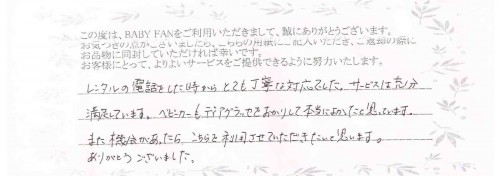 この度は、BABY FANをご利用いただきまして、誠にありがとうございます。
お気づきの点がございましたら、こちらの用紙にご記入いただき、ご返却の際に
お品物に同封していただければ幸いです。
お客様にとって、よりよいサービスをご提供できるように努力いたします。
レンタルの電話をした時からとても丁寧な対応でした。サービスは充分
満足しています。ベビーカーもデパグラッセをおかりして本当によかったと思っています。
また機会があったら、こちらを利用させていただきたいと思います。
ありがとうございました。